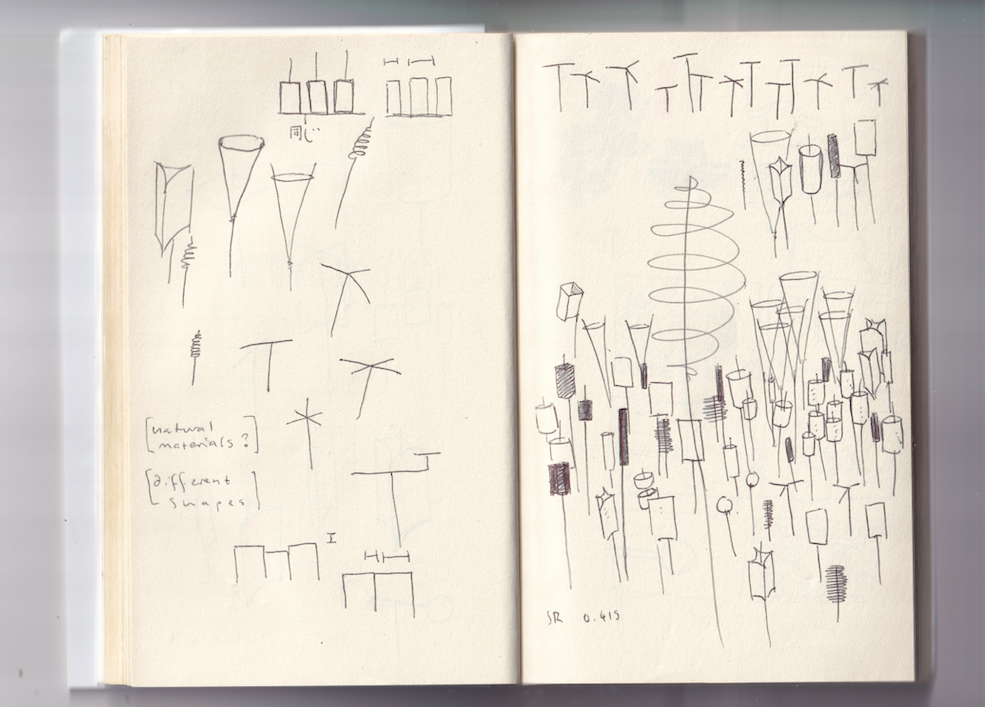 同じ
[natural
materials?]
[different
shapes]
SR 0.419